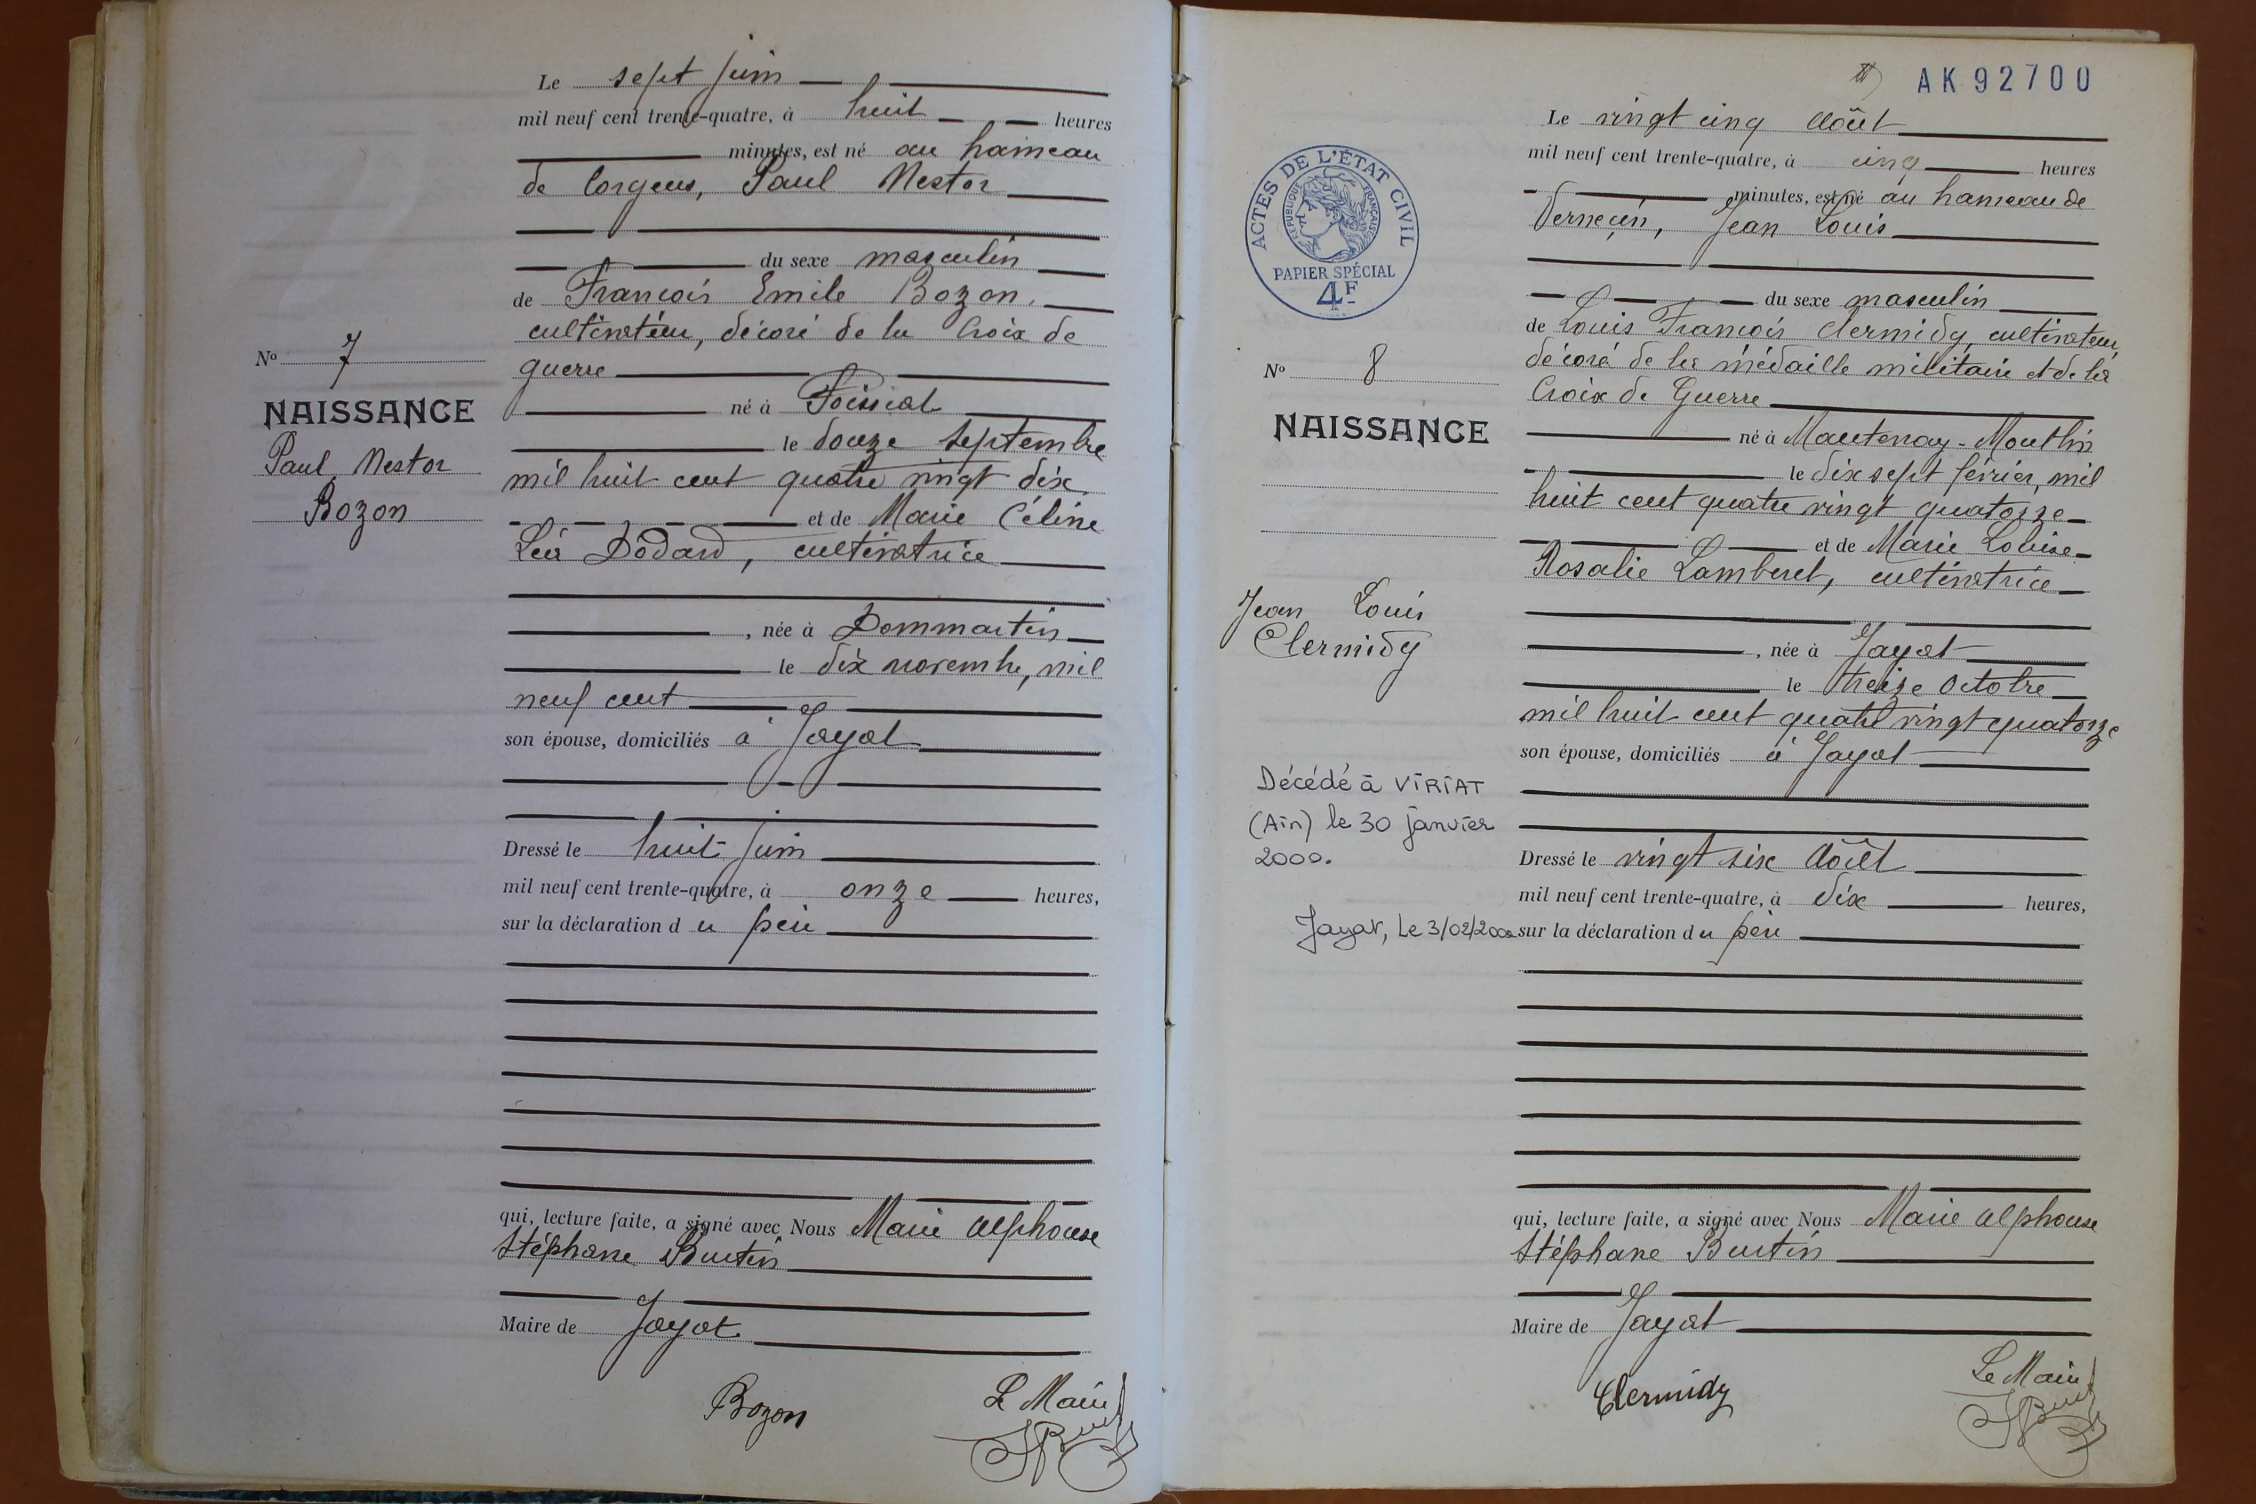 Le sept juin
mil neuf cent trente-quatre, à huit heures
minutes, est né au hameau
de Corgeus, Paul Nestor
du sexe masculin
de François Emile Bozon,
cultivateur, décoré de la Croix de
guerre
né à Foissiat
le douze septembre
mil huit cent quatre vingt dix
et de Marie Céline
Léa Dodard, cultivatrice
, née à Dommartin
le dix novembre, mil
neuf cent
son épouse, domiciliés à Jayat
Dressé le huit juin
mil neuf cent trente-quatre, à onze heures,
sur la déclaration du père
qui, lecture faite, a signé avec Nous Marie Alphonse
Stéphane Burtin
Maire de Jayat
Bozon
Le Maire
No 7
NAISSANCE
Paul Nestor
Bozon
AK92700
ACTES DE L'ÉTAT CIVIL
RÉPUBLIQUE FRANÇAISE
PAPIER SPÉCIAL
4F
Le vingt cinq Août
mil neuf cent trente-quatre, à cinq heures
minutes, est né au hameau de
Jean Louis
du sexe masculin
de Louis François Clermidy, cultivateur,
décoré de la médaille militaire et de la
Croix de Guerre
né à Mantenay-Montlin
le dix sept février, mil
huit cent quatre vingt quatorze
et de Marie Louise
Rosalie Lamberet, cultivatrice
, née à Jayat
le treize Octobre
mil huit cent quatre vingt quatorze
son épouse, domiciliés à Jayat
Dressé le vingt six Août
mil neuf cent trente-quatre, à dix heures,
sur la déclaration du père
qui, lecture faite, a signé avec Nous Marie Alphonse
Stéphane Burtin
Maire de Jayat
Clermidy
Le Maire
No 8
NAISSANCE
Jean Louis
Clermidy
Décédé à VIRIAT
(Ain) le 30 janvier
2000.
Jayat, Le 3/02/2000